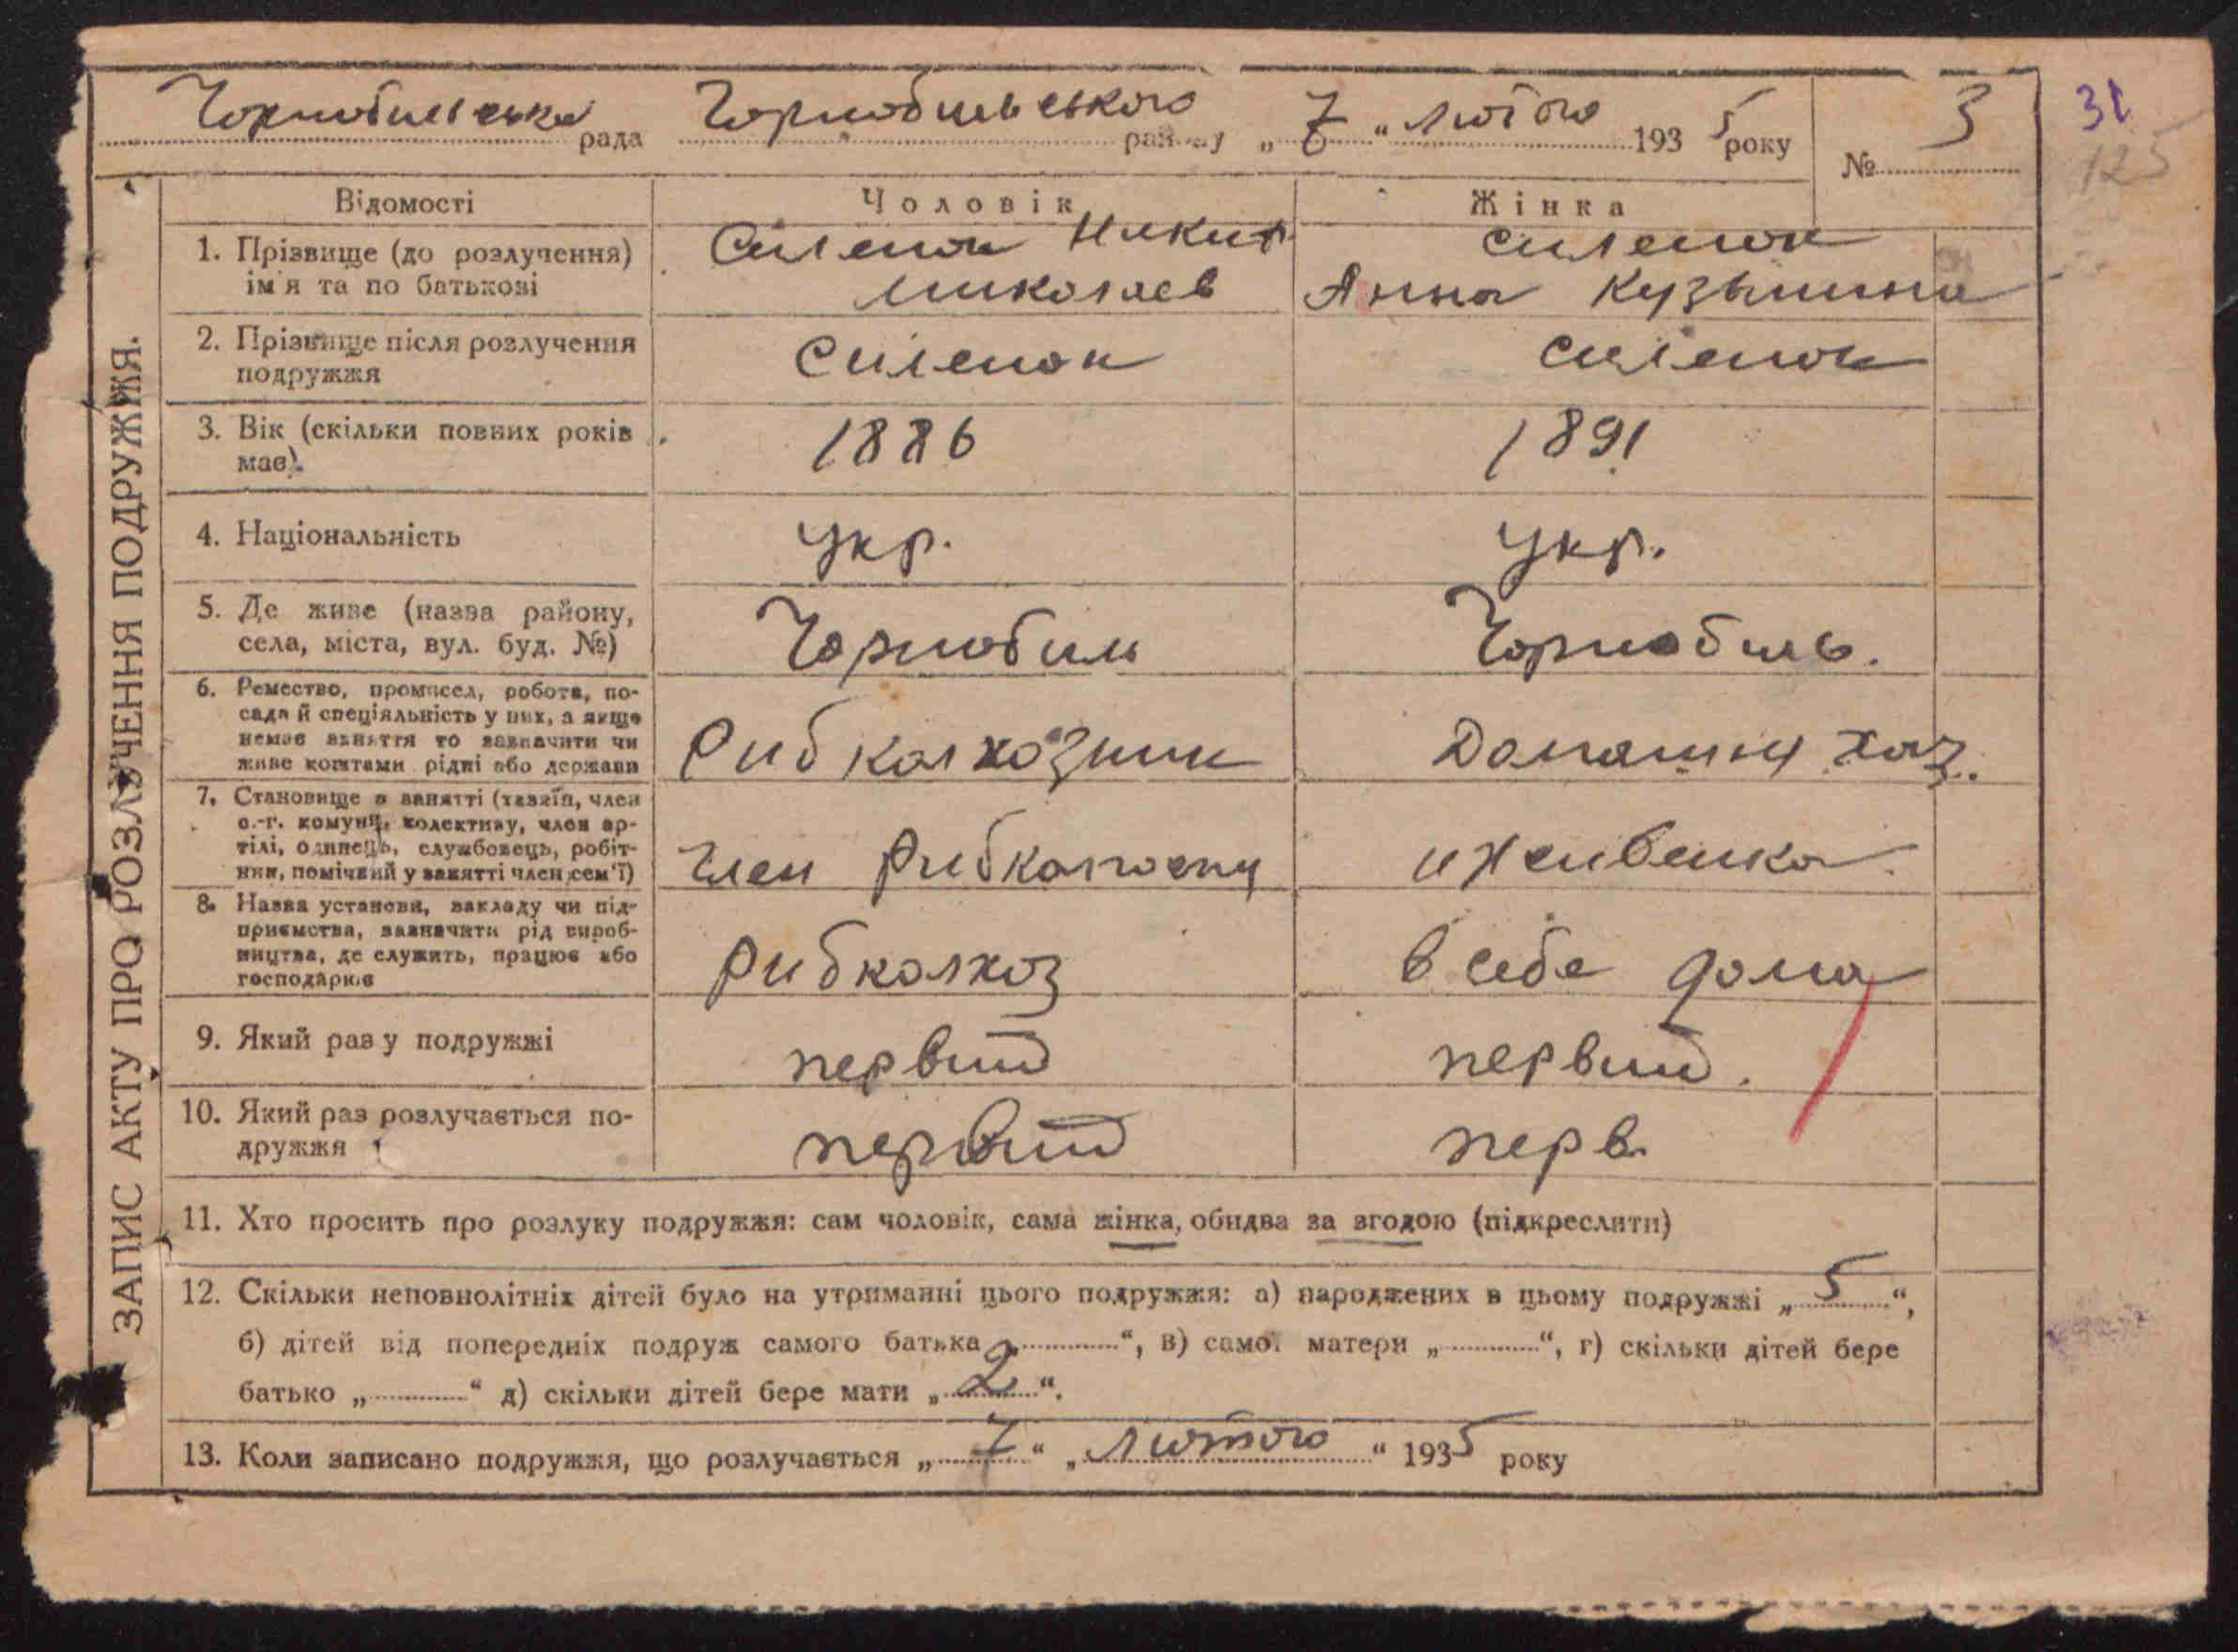 Чорнобильська рада Чорнобильського району „ 7 “ Лютого 193 5 року № 3
31
125
ЗАПИС АКТУ ПРО РОЗЛУЧЕННЯ ПОДРУЖЖЯ.
Відомості Чоловік Жінка
1. Прізвище (до розлучення) ім'я та по батькові
Силенок Никит
Миколаев
Силенок
Анна Кузьминна
2. Прізвище після розлучення подружжя
Силенок
Силенок
3. Вік (скільки повних років має).
1886
1891
4. Національність
укр.
укр.
5. Де живе (назва району, села, міста, вул. буд. №)
Чорнобиль
Чорнобиль.
6. Ремество, промисел, робота, по-
сада й спеціяльність у них, а якщо
немає заняття то зазначити чи
живе коштами рідні або держави
Рибколхозник
Домашну хоз.
7. Становище в занятті (хазяїн, член
с.-г. комуни, колективу, член ар-
тілі, одинець, службовець, робіт-
ник, помічний у занятті член сем'ї)
Член
иждивенка.
8. Назва установи, закладу чи під-
приємства, зазначити рід вироб-
ництва, де служить, працює або
господарює
Рибколхоз
в себе дома
9. Який раз у подружжі
первий
первий.
10. Який раз розлучається по-
дружжя
первий
перв.
11. Хто просить про розлуку подружжя: сам чоловік, сама жінка, обидва за згодою (підкреслити)
12. Скільки неповнолітніх дітей було на утриманні цього подружжя: а) народжених в цьому подружжі „ 5 “,
б) дітей від попередніх подруж самого батька „ “, в) самої матери „ “, г) скільки дітей бере
батько „ “ д) скільки дітей бере мати „ 2 “.
13. Коли записано подружжя, що розлучається „ 7 “ „ Лютого “ 1935 року